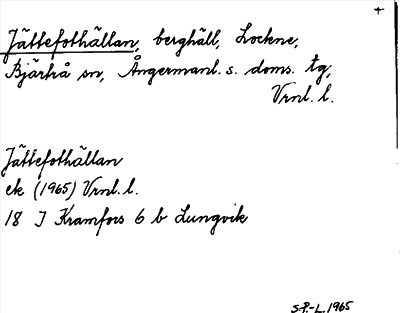 +
Jättefothällan, berghäll, Lockne,
Bjärtrå sn, Ångermanl. s. doms. tg,
Vrnl. l.
Jättefothällan
ek (1965) Vrnl. l.
18 J Kramfors 6 b Lungvik
S.P.-L. 1965